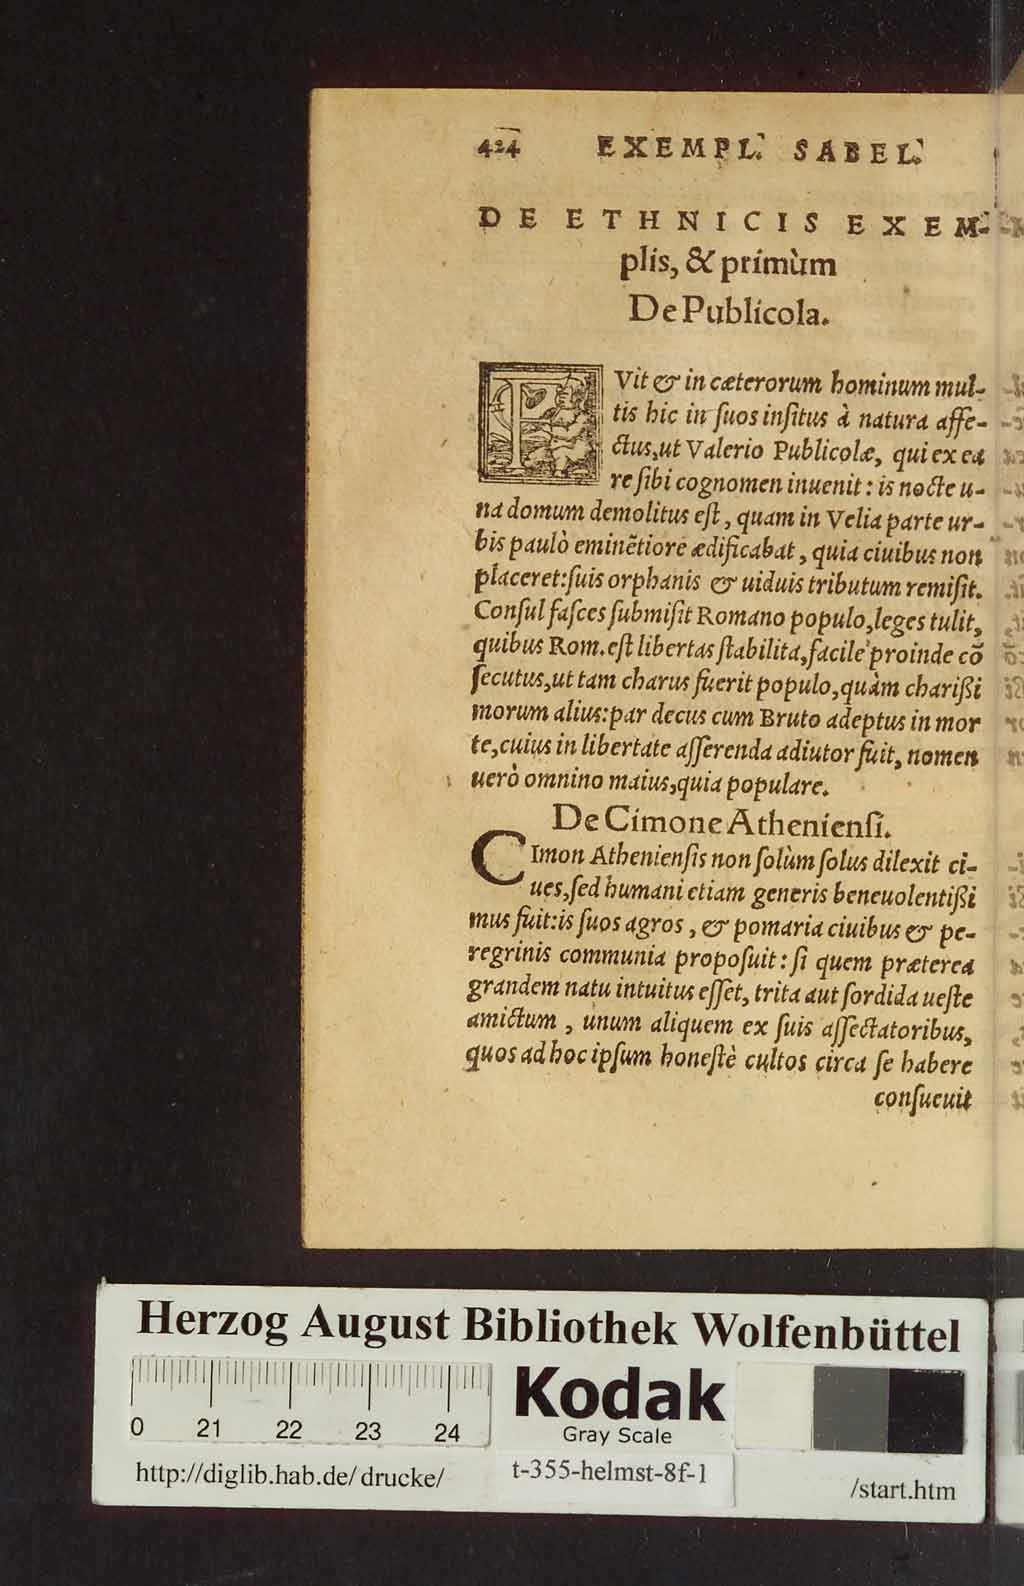 424 EXEMPL. SABEL.
DE ETHNICIS EXEM-
plis, & primùm
De Publicola.
FVit & in cæterorum hominum mul-
tis hic in ſuos inſitus à natura affe-
ctus, ut Valerio Publicolæ, qui ex ea
re ſibi cognomen inuenit: is nocte u-
na domum demolitus eſt, quam in Velia parte ur-
bis paulò eminẽtiore ædificabat, quia ciuibus non
placeret: ſuis orphanis & uiduis tributum remiſit.
Conſul faſces ſubmiſit Romano populo, leges tulit,
quibus Rom. eſt libertas ſtabilita, facile proinde cõ
ſecutus, ut tam charus fuerit populo, quàm charißi
morum alius: par decus cum Bruto adeptus in mor
te, cuius in libertate aſſerenda adiutor fuit, nomen
uerò omnino maius, quia populare.
De Cimone Athenienſi.
CImon Athenienſis non ſolùm ſolus dilexit ci-
ues, ſed humani etiam generis beneuolentißi
mus fuit: is ſuos agros, & pomaria ciuibus & pe-
regrinis communia propoſuit: ſi quem præterea
grandem natu intuitus eſſet, trita aut ſordida ueſte
amictum, unum aliquem ex ſuis aſſectatoribus,
quos ad hoc ipſum honeſtè cultos circa ſe habere
conſueuit
Herzog August Bibliothek Wolfenbüttel
0 21 22 23 24
Kodak
Gray Scale
http://diglib.hab.de/drucke/ t-355-helmst-8f-1 /start.htm